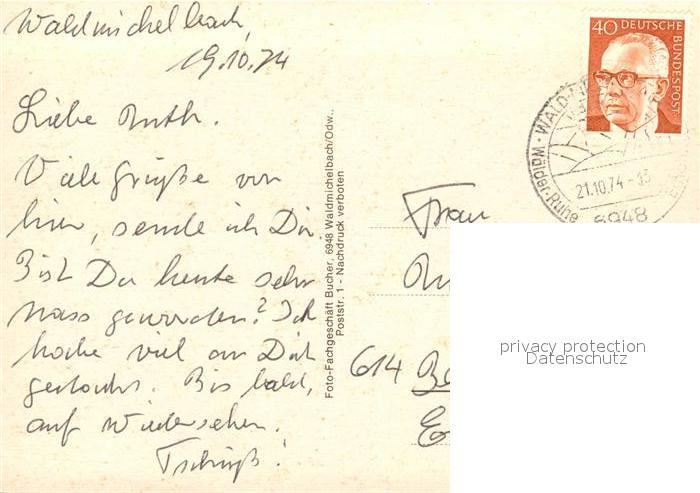 Waldmichelbach,
19.10.74
Liebe Ruth.
Viele Grüße von
hier, sende ich Dir.
Bist Du heute sehr
nass geworden? Ich
habe viel an Dich
gedacht. Bis bald,
auf Wiedersehen.
Tschüß!
Foto-Fachgeschäft Bucher, 6948 Waldmichelbach/Odw.,
Poststr. 1 - Nachdruck verboten
40 DEUTSCHE
BUNDESPOST
WALD-MI
21.10.74-13
Wälder-Ruhe
6948
Frau
614 Be
privacy protection
Datenschutz